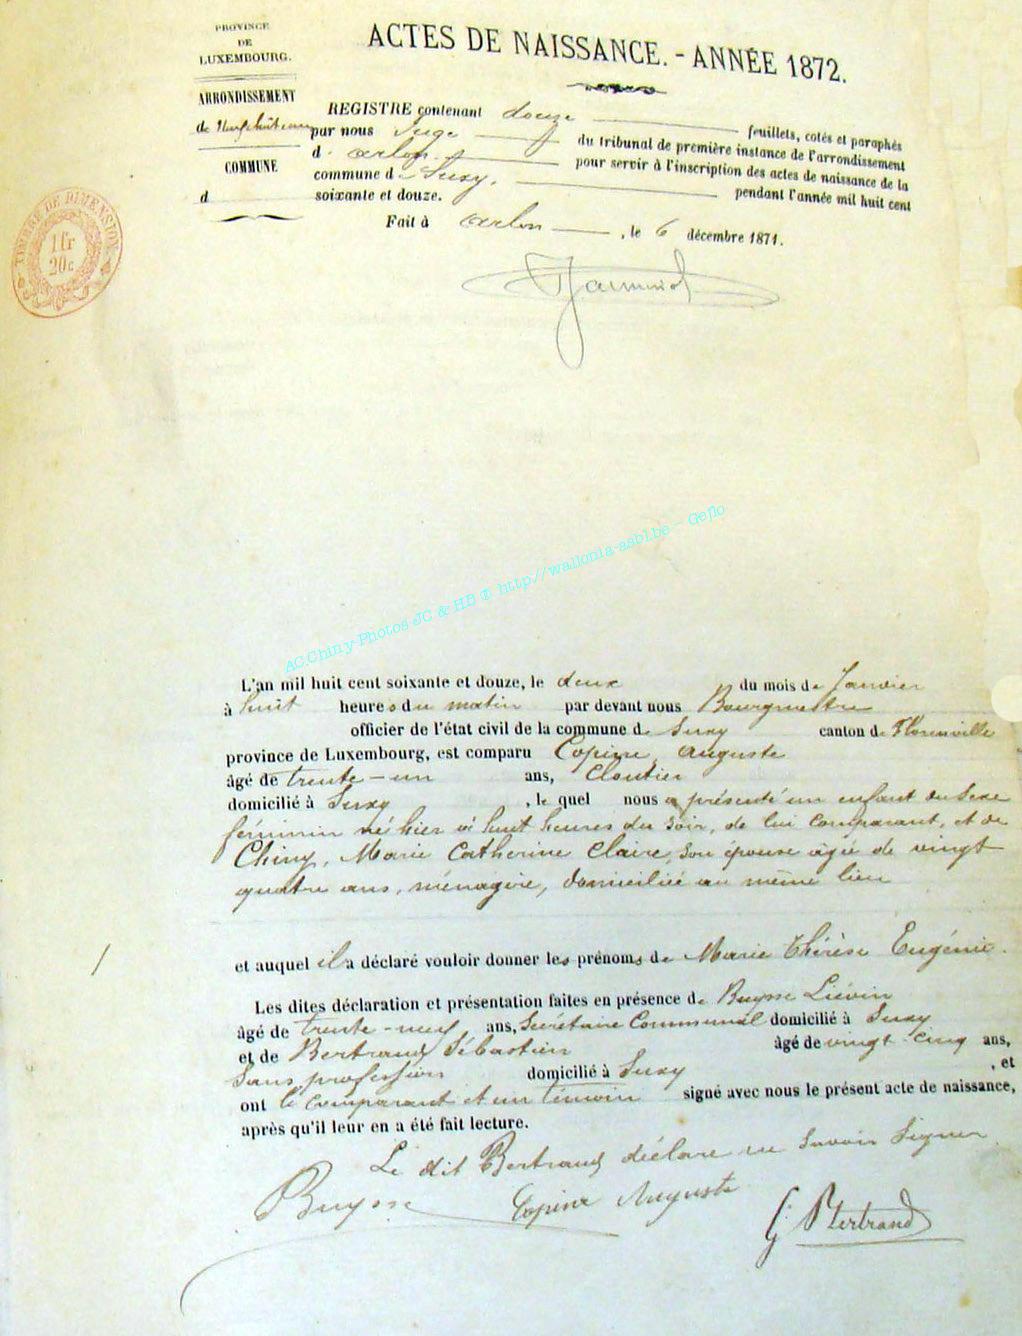 PROVINCE
DE
LUXEMBOURG.
ARRONDISSEMENT
de Neufchâteau
COMMUNE
d
ACTES DE NAISSANCE. - ANNÉE 1872.
REGISTRE contenant douze feuillets, cotés et paraphés
par nous Juge du tribunal de première instance de l'arrondissement
d' arlon pour servir à l'inscription des actes de naissance de la
commune de Suxy, pendant l'année mil huit cent
soixante et douze.
Fait à arlon, le 6 décembre 1871.
TIMBRE DE DIMENSION
1 fr
20 c
AC.Chiny-Photos JC & HB © http://wallonia-asbl.be - Geflo
L'an mil huit cent soixante et douze, le deux du mois de Janvier
à huit heures du matin par devant nous Bourgmestre
officier de l'état civil de la commune de Suxy canton de Florenville
province de Luxembourg, est comparu Copine, auguste
âgé de trente-un ans, Cloutier
domicilié à Suxy, le quel nous a présenté un enfant du sexe
féminin né hier à huit heures du soir, de lui comparant, et de
Chiny, Marie Catherine Claire, son épouse âgée de vingt
quatre ans, ménagère, domiciliée au même lieu
et auquel il a déclaré vouloir donner les prénoms de Marie Thérèse Eugénie.
Les dites déclaration et présentation faites en présence de Buysse Liévin
âgé de trente-neuf ans, Secrétaire Communal domicilié à Suxy
et de Bertrand Sébastien âgé de vingt-cinq ans,
Sans profession domicilié à Suxy, et
ont le comparant et un témoin signé avec nous le présent acte de naissance,
après qu'il leur en a été fait lecture.
Le dit Bertrand déclare ne savoir signer
Buysse Copine Auguste
G Bertrand